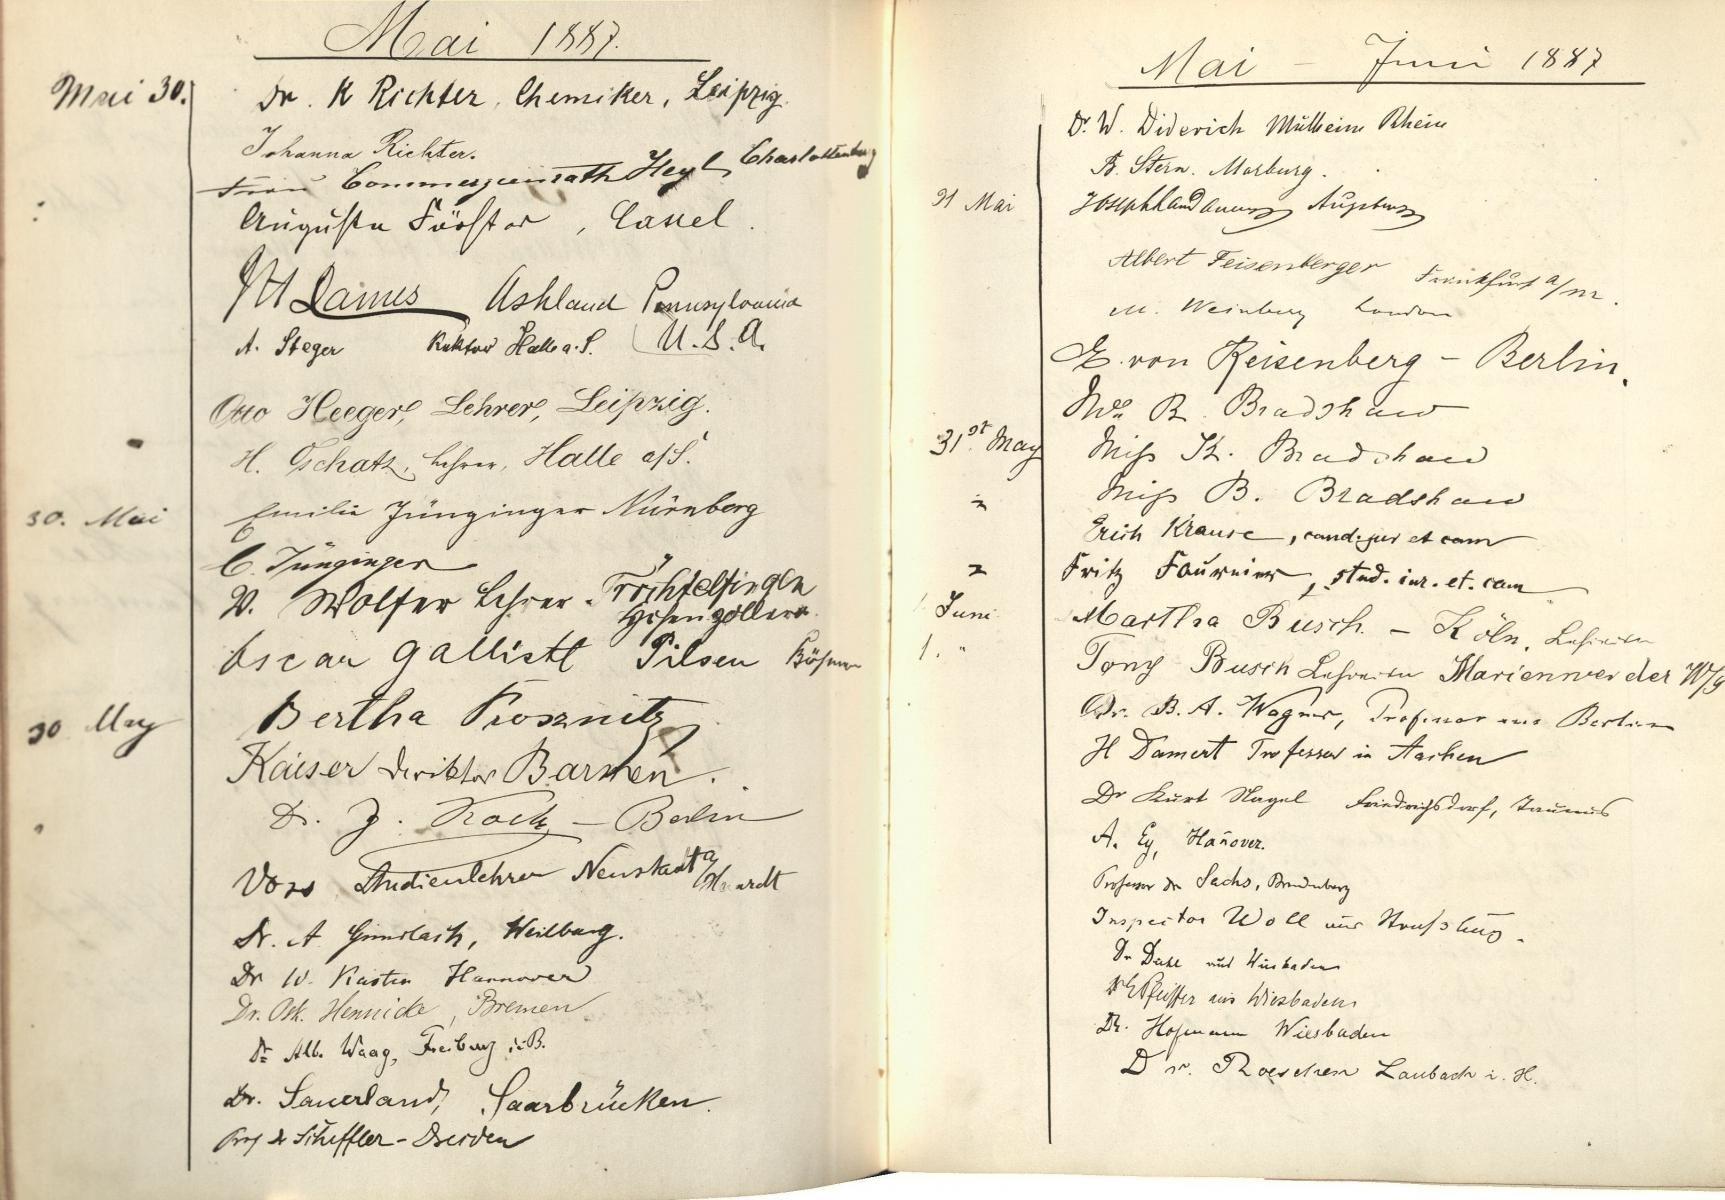 Mai 1887.
Mai 30. Dr. K Richter, Chemiker, Leipzig.
Johanna Richter.
Frau Commerzienrath Heyl, Charlottenburg
Augusta Förster, Cassel.
Dames Ashland Pennsylvania
U.S.A.
A. Steger Rektor Halle a. S.
Otto Heeger, Lehrer, Leipzig.
H. Tschatz, Lehrer, Halle a/S.
30. Mai Emilie Jünginger Nürnberg
C. Jünginger
V. Wolfer Lehrer. Tröchtelfingen
Hohenzollern.
Oscar Gallistl Pilsen Böhmen
30 May Bertha Prosznitz
Kaiser Direktor Barmen.
Dr. J. Koch - Berlin
Voss Studienlehrer Neustadt a/Haardt
Dr. A Gundlach, Weilburg.
Dr W. Kasten Hannover
Dr. Osk. Hennicke, Bremen
Dr Alb. Waag, Freiburg i. B.
Dr. Sauerland, Saarbrücken.
Prof Dr Scheffler - Dresden
Mai - Juni 1887
Dr. W. Diderich Mülheim Rhein
B. Stern. Marburg.
31 Mai Joseph Landauer Augsburg
Albert Feisenberger Frankfurt a/M.
M. Weinberg London
E. von Reisenberg - Berlin.
Mrs R. Bradshaw
31st May Miss K. Bradshaw
Miss B. Bradshaw
Erich Krause, cand. jur et cam
Fritz Fournier, stud. iur. et. cam
Juni Martha Busch. - Köln, Lehrerin
1. " Tony Busch Lehrerin Marienwerder W/
Dr. B. A. Wagner, Professor aus Berlin
H Damert Professor in Aachen
Dr Kurt Nagel Friedrichsdorf, Taunus
A. Ey, Hañover.
Professor Dr Sachs, Brandenburg
Inspector Woll aus Straßburg.
Dr Dahl aus Wiesbaden
Pfeiffer aus Wiesbaden
Dr. Hofmann Wiesbaden
Dr. Roeschen Laubach i. H.